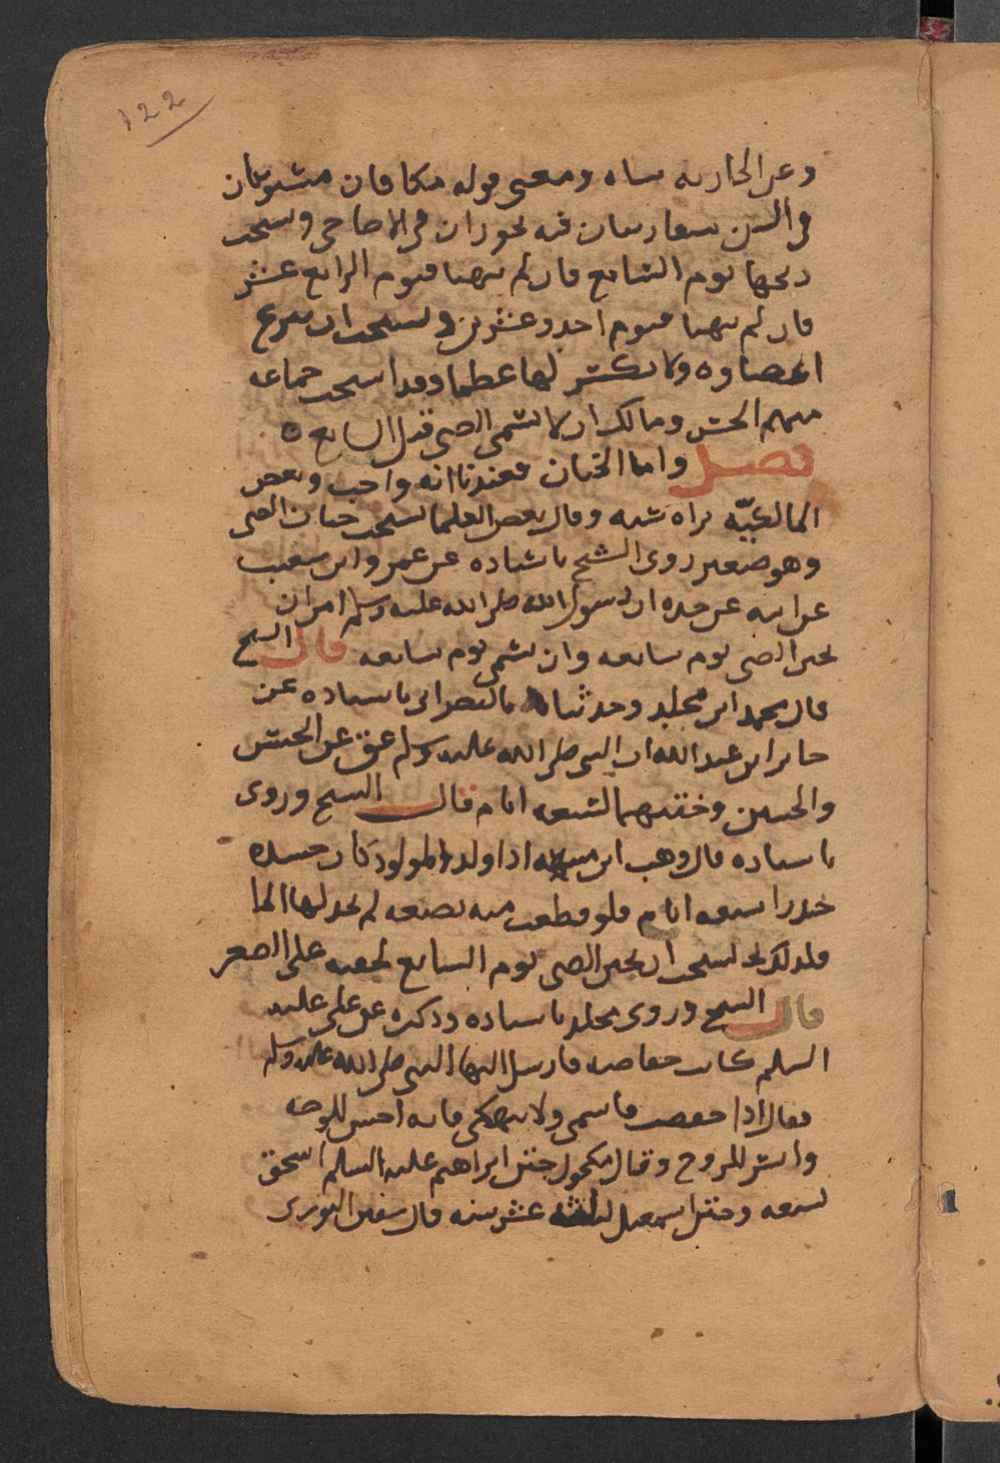 122
وعن الجاريه شاه ومعنى قوله مكافان مشتويتان
في السن متقاربتان فيه يجوزان في الاضاحي ويستحب
ذبحها يوم السابع فان لم يتهيا فيوم الرابع عشر
فان لم يتهيا فيوم احد وعشرين ويستحب ان
اعضاوه ولا يكسر لها عظما وقد استحب جماعه
منهم الحسن ومالك ان لا يسمى الصبي قبل السابع ه
فصل واما الختان فعندنا انه واجب وبعض
المالكيّه يراه سنه وقال بعض العلما يستحب ختان الصبي
وهو صغير روى الشيخ باسناده عن عمرو ابن شعيب
عن ابيه عن جده ان رسول الله صلى الله عليه وسلم امر ان
يختن الصبي يوم سابعه وان يسمى يوم سابعه قال الشيخ
قال محمد ابن مخلد وحدثنا باسناده عن
جابر ابن عبد الله ان النبي صلى الله عليه وسلم عق عن الحسن
والحسين وختنهما لسبعه ايام قال الشيخ وروى
باسناده قال وهب ابن منبه اذا ولد المولود كان جسده
خدرا سبعه ايام فلو قطعت منه بضعه لم يجد لها الما
فلذلك يستحب ان يختن الصبي يوم السابع لخفته على الصغير
قال الشيخ وروى مخلد باسناده وذكره عن علي عليه
السلم كانت خفاضه فارسل اليها النبي صلى الله عليه وسلم
فقال اذا خفضت فاشمي ولا تنهكي فانه احسن للوجه
وقال مكحول ختن ابراهيم عليه السلم اسحق
لسبعه وختن اسمعيل لثلثه عشر سنه قال سفين الثوري